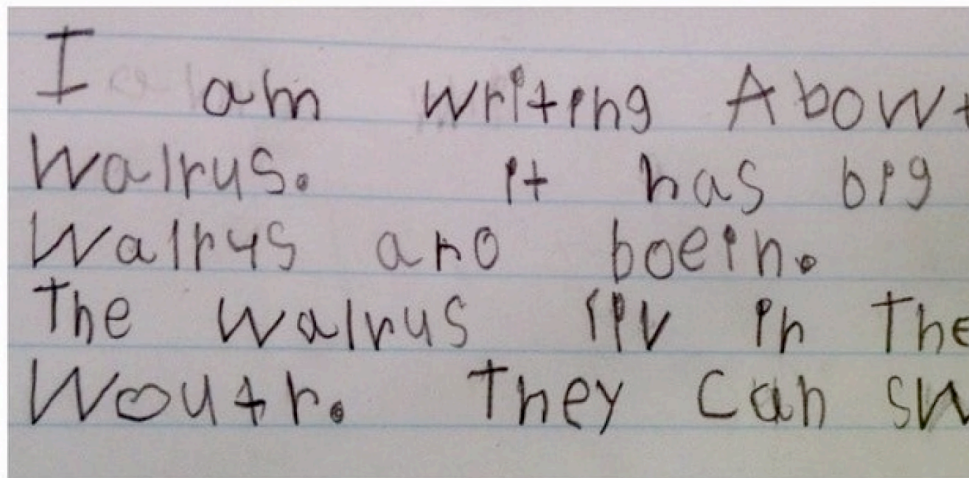 I am writing Abowt
Walrus. it has big
Walrus ano boein.
The walrus liv in The
Woutr. They can sw